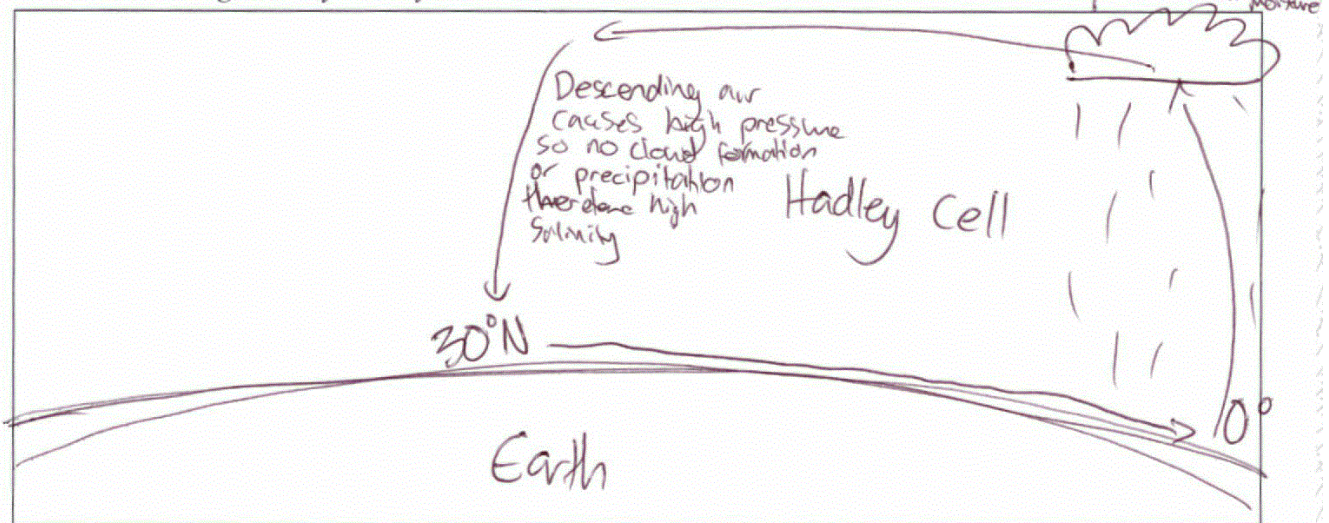 moisture
Descending air
causes high pressure
so no cloud formation
or precipitation
therefore high
Salinity
Hadley Cell
30°N
0°
Earth